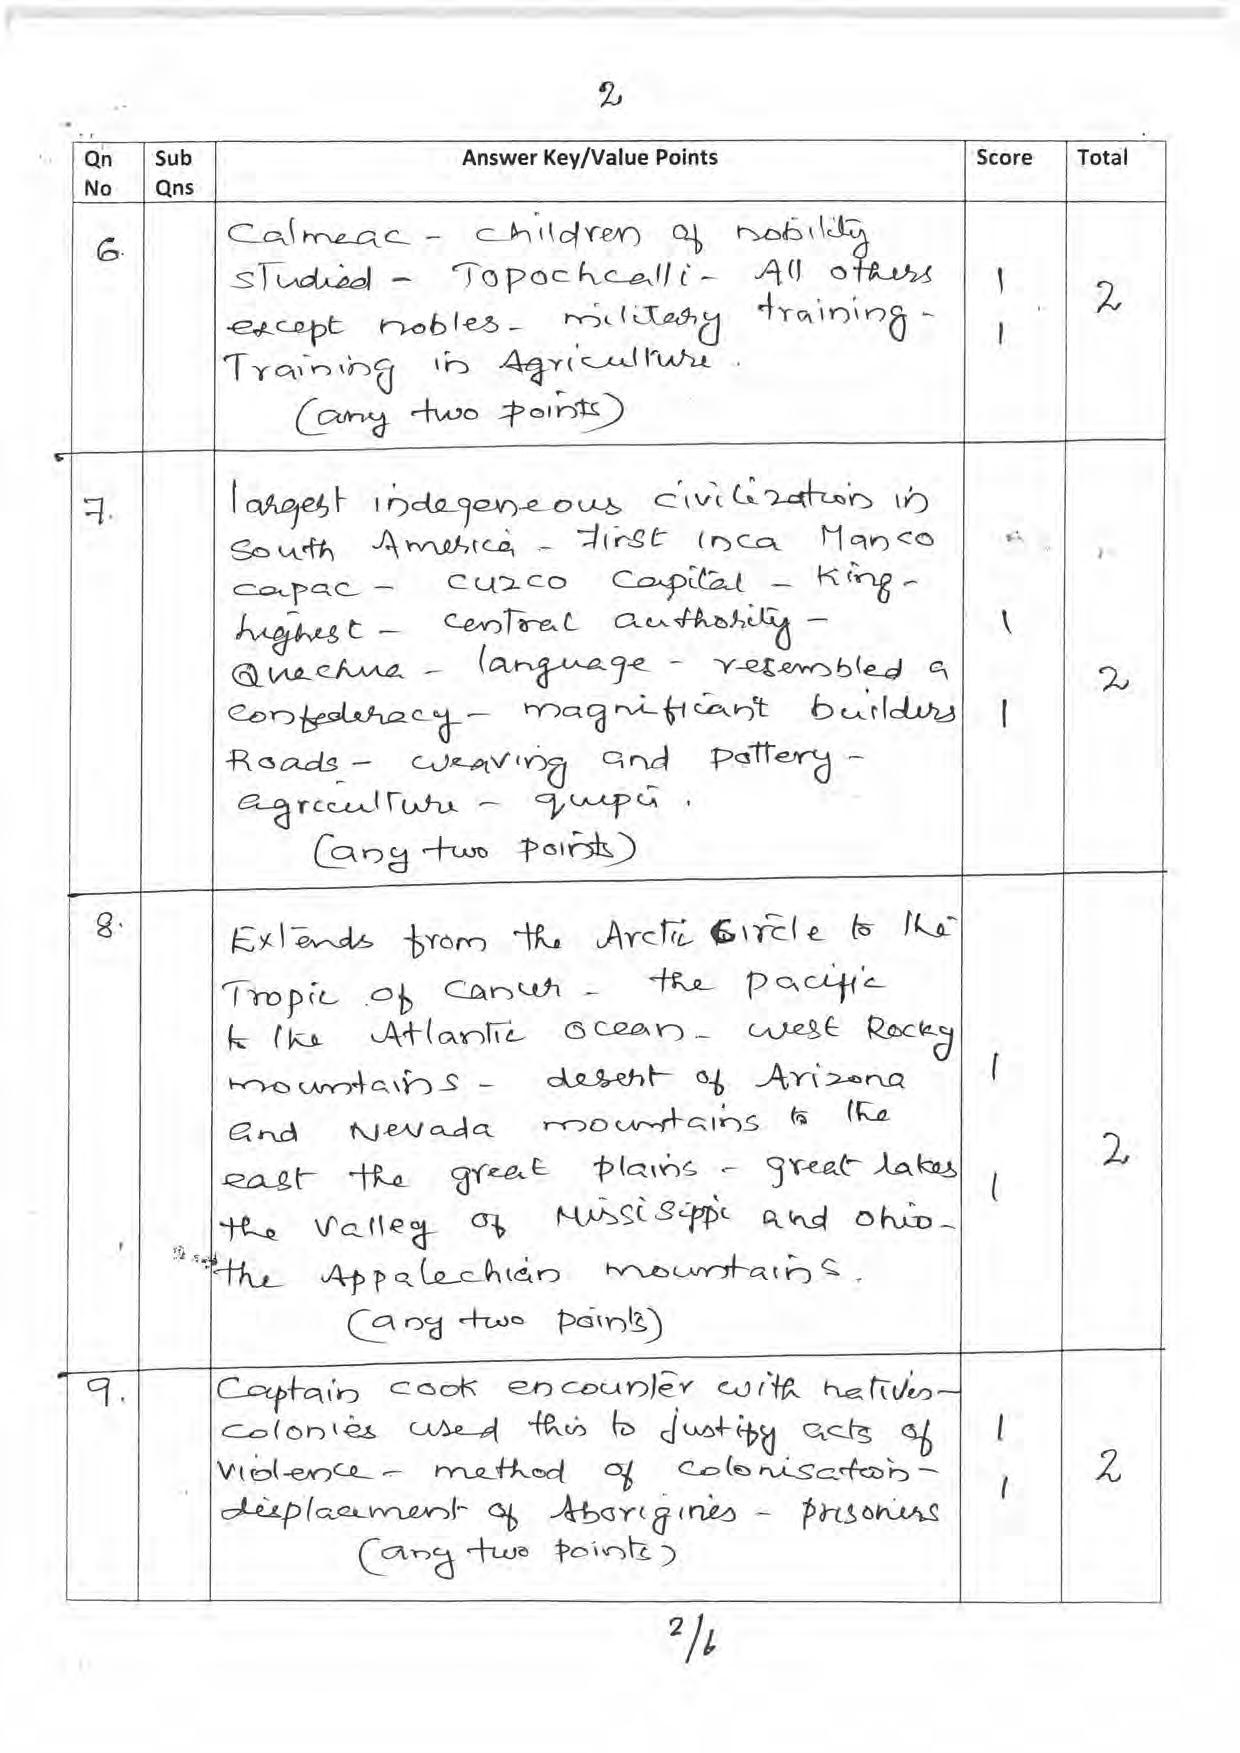 2
Qn No Sub Qns Answer Key/Value Points Score Total
6. Calmeac - children of nobility
studied - Topochcalli - All others 1
except nobles - military training - 1 2
Training in Agriculture.
(any two points)
7. largest indegeneous civilization in
South America - First Inca Manco
capac - cuzco capital - King -
highest - central authority - 1
Quechua - language - resembled a 2
confederacy - magnificant builders 1
Roads - weaving and pottery -
agriculture - quipu.
(any two points)
8. Extends from the Arctic Circle to the
Tropic of Cancer - the pacific
to the Atlantic ocean - west Rocky
mountains - desert of Arizona 1
and Nevada mountains to the
east the great plains - great lakes 2
the valley of Missisippi and ohio - 1
the Appalechian mountains.
(any two points)
9. Captain cook encounter with natives -
colonies used this to justify acts of 1
violence - method of colonisation - 1 2
displacement of Aborigines - prisoners
(any two points)
2/6